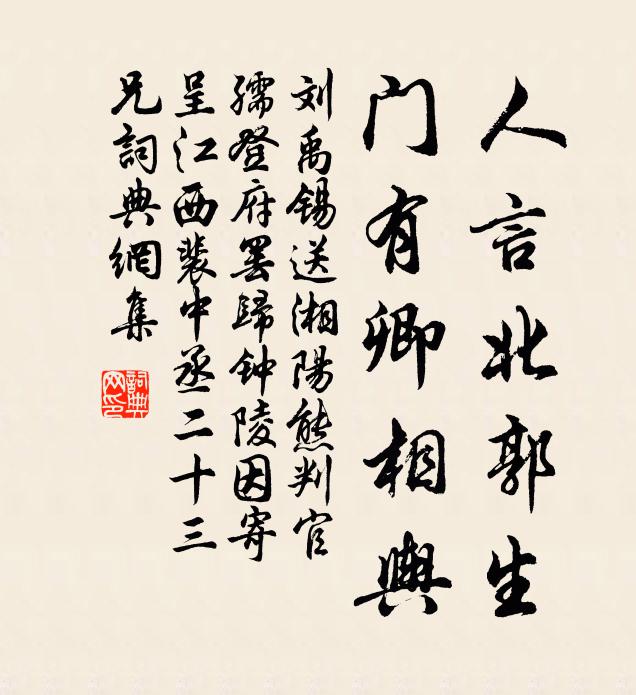 人言北郭生
门有卿相輿
刘禹锡送湘陽熊判官
孺登府罢歸钟陵因寄
呈江西裴中丞二十三
兄詞典網集
詞典
网印